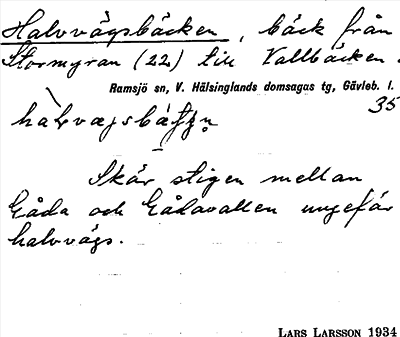 Halvvägsbäcken, bäck från
Stormyran (22) till Vallbäcken.
Ramsjö sn, V. Hälsinglands domsagas tg, Gävleb. l.
35
Skär stigen mellan
Gåda och Gådavallen ungefär
halvvägs.
LARS LARSSON 1934